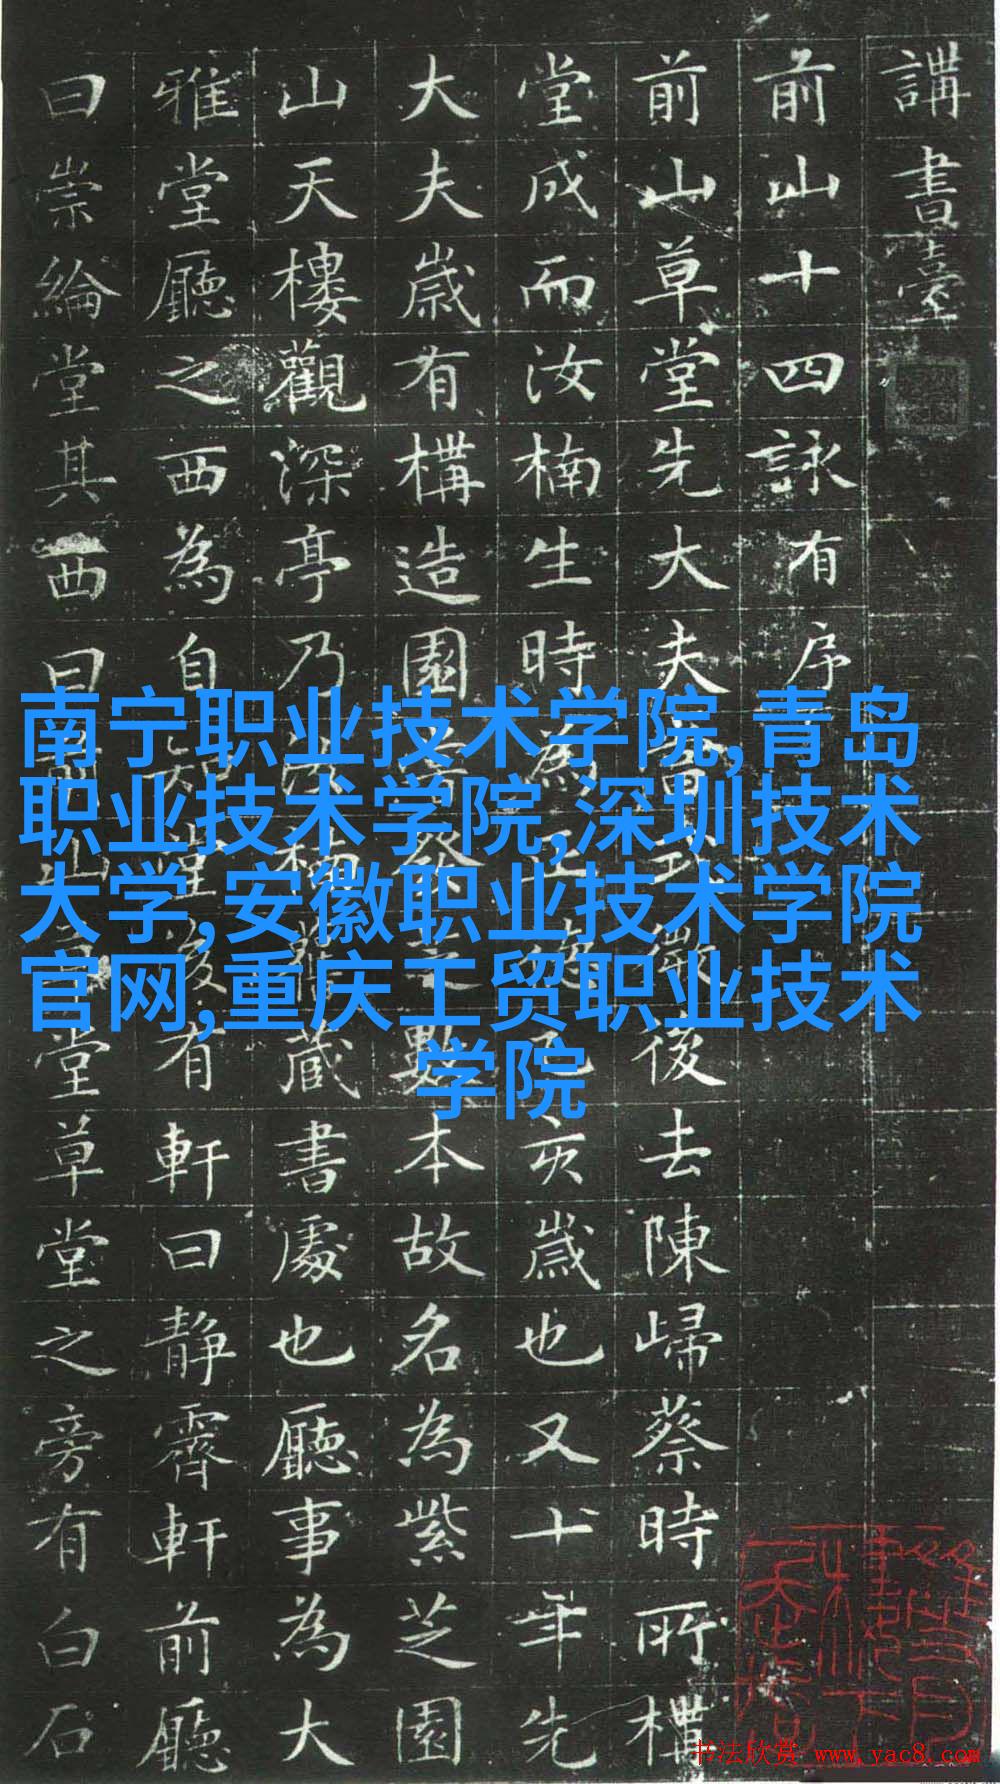 講書臺
前山十四詠有序
前山草堂先大夫後去陳歸蔡時所構
堂成而汝楠生時為正亥歲也又十年先
大夫歲有構造園數本故名為紫芝園
山天樓觀深亭乃汝楠藏書處也廳事為大
雅堂廳之西為自知堂後有軒曰靜霽軒前廳
曰崇綸堂其西曰前山草堂草堂之旁有白石
南宁职业技术学院,青岛
职业技术学院,深圳技术
大学,安徽职业技术学院
官网,重庆工贸职业技术
学院
书法欣赏 www.yac8.com